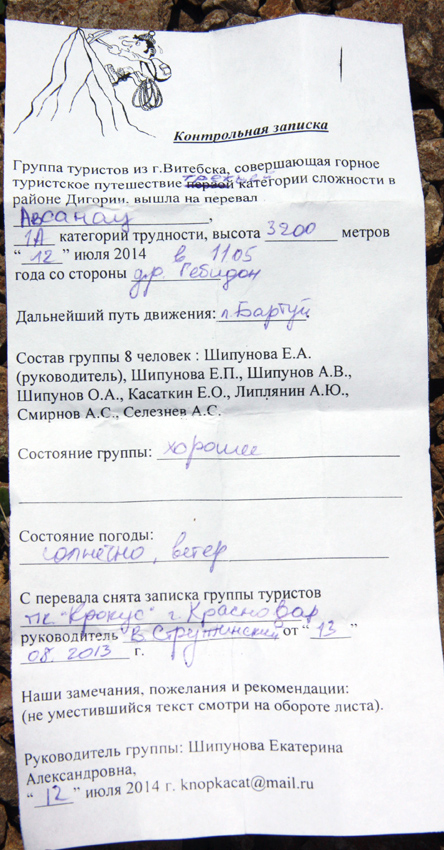 Контрольная записка
Группа туристов из г.Витебска, совершающая горное
третьей
туристское путешествие первой категории сложности в
районе Дигории, вышла на перевал
Авсанау,
1А категории трудности, высота 3200 метров
“12” июля 2014 в 1105
года со стороны др. Гебидон
Дальнейший путь движения: л. Бартуй
Состав группы 8 человек : Шипунова Е.А.
(руководитель), Шипунова Е.П., Шипунов А.В.,
Шипунов О.А., Касаткин Е.О., Липлянин А.Ю.,
Смирнов А.С., Селезнев А.С.
Состояние группы: хорошее
Состояние погоды:
солнечно, ветер
С перевала снята записка группы туристов
тк. "Крокус" г. Краснодар
руководитель В Струтинский от “13”
08. 2013 г.
Наши замечания, пожелания и рекомендации:
(не уместившийся текст смотри на обороте листа).
Руководитель группы: Шипунова Екатерина
Александровна,
“12” июля 2014 г. knopkacat@mail.ru